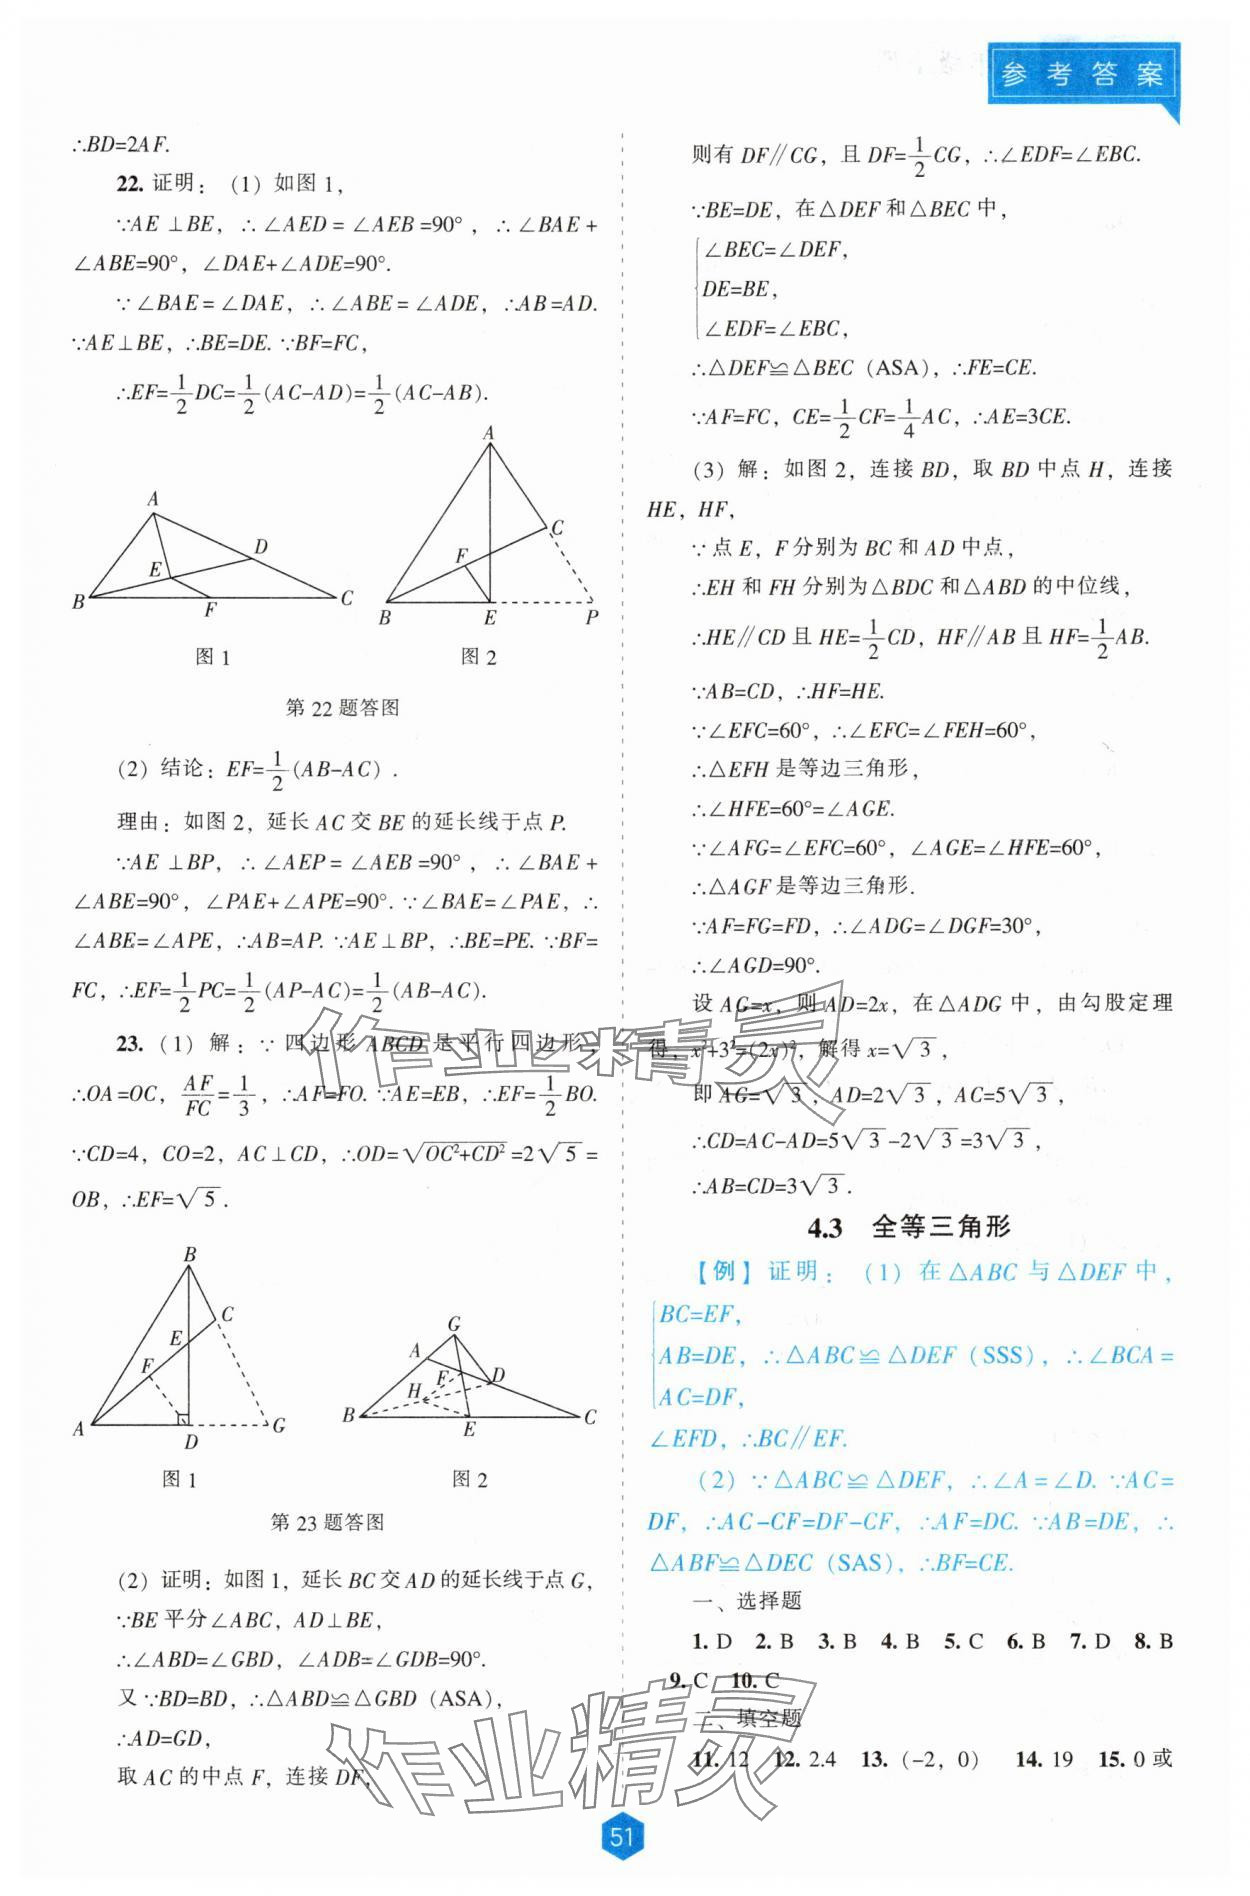 参考答案
∴BD=2AF.
22. 证明：(1) 如图 1，
∵AE⊥BE，∴∠AED=∠AEB=90°，∴∠BAE+
∠ABE=90°，∠DAE+∠ADE=90°.
∵∠BAE=∠DAE，∴∠ABE=∠ADE，∴AB=AD.
∵AE⊥BE，∴BE=DE. ∵BF=FC，
∴EF=1/2DC=1/2(AC-AD)=1/2(AC-AB).
A
D
E
B
F
C
图 1
A
C
F
B
E
P
图 2
第 22 题答图
(2) 结论：EF=1/2(AB-AC).
理由：如图 2，延长 AC 交 BE 的延长线于点 P.
∵AE⊥BP，∴∠AEP=∠AEB=90°，∴∠BAE+
∠ABE=90°，∠PAE+∠APE=90°. ∵∠BAE=∠PAE，∴
∠ABE=∠APE，∴AB=AP. ∵AE⊥BP，∴BE=PE. ∵BF=
FC，∴EF=1/2PC=1/2(AP-AC)=1/2(AB-AC).
23. (1) 解：∵四边形 ABCD 是平行四边形，
∴OA=OC，AF/FC=1/3，∴AF=FO. ∵AE=EB，∴EF=1/2BO.
∵CD=4，CO=2，AC⊥CD，∴OD=√(OC²+CD²)=2√5=
OB，∴EF=√5.
B
C
E
F
A
D
G
图 1
G
A
F
D
H
B
E
C
图 2
第 23 题答图
(2) 证明：如图 1，延长 BC 交 AD 的延长线于点 G，
∵BE 平分∠ABC，AD⊥BE，
∴∠ABD=∠GBD，∠ADB=∠GDB=90°.
又∵BD=BD，∴△ABD≌△GBD (ASA)，
∴AD=GD，
取 AC 的中点 F，连接 DF，
则有 DF∥CG，且 DF=1/2CG，∴∠EDF=∠EBC.
∵BE=DE，在△DEF 和△BEC 中，
∠BEC=∠DEF，
DE=BE，
∠EDF=∠EBC，
∴△DEF≌△BEC (ASA)，∴FE=CE.
∵AF=FC，CE=1/2CF=1/4AC，∴AE=3CE.
(3) 解：如图 2，连接 BD，取 BD 中点 H，连接
HE，HF，
∵点 E，F 分别为 BC 和 AD 中点，
∴EH 和 FH 分别为△BDC 和△ABD 的中位线，
∴HE∥CD 且 HE=1/2CD，HF∥AB 且 HF=1/2AB.
∵AB=CD，∴HF=HE.
∵∠EFC=60°，∴∠EFC=∠FEH=60°，
∴△EFH 是等边三角形，
∴∠HFE=60°=∠AGE.
∵∠AFG=∠EFC=60°，∠AGE=∠HFE=60°，
∴△AGF 是等边三角形.
∵AF=FG=FD，∴∠ADG=∠DGF=30°，
∴∠AGD=90°.
设 AG=x，则 AD=2x，在△ADG 中，由勾股定理
得，x²+3²=(2x)²，解得 x=√3，
即 AG=√3，AD=2√3，AC=5√3，
∴CD=AC-AD=5√3-2√3=3√3，
∴AB=CD=3√3.
4.3 全等三角形
【例】证明：(1) 在△ABC 与△DEF 中，
BC=EF，
AB=DE，∴△ABC≌△DEF (SSS)，∴∠BCA=
AC=DF，
∠EFD，∴BC∥EF.
(2) ∵△ABC≌△DEF，∴∠A=∠D. ∵AC=
DF，∴AC-CF=DF-CF，∴AF=DC. ∵AB=DE，∴
△ABF≌△DEC (SAS)，∴BF=CE.
一、选择题
1. D 2. B 3. B 4. B 5. C 6. B 7. D 8. B
9. C 10. C
二、填空题
11. 12 12. 2.4 13. (-2，0) 14. 19 15. 0 或
作业精灵
作业精灵
51